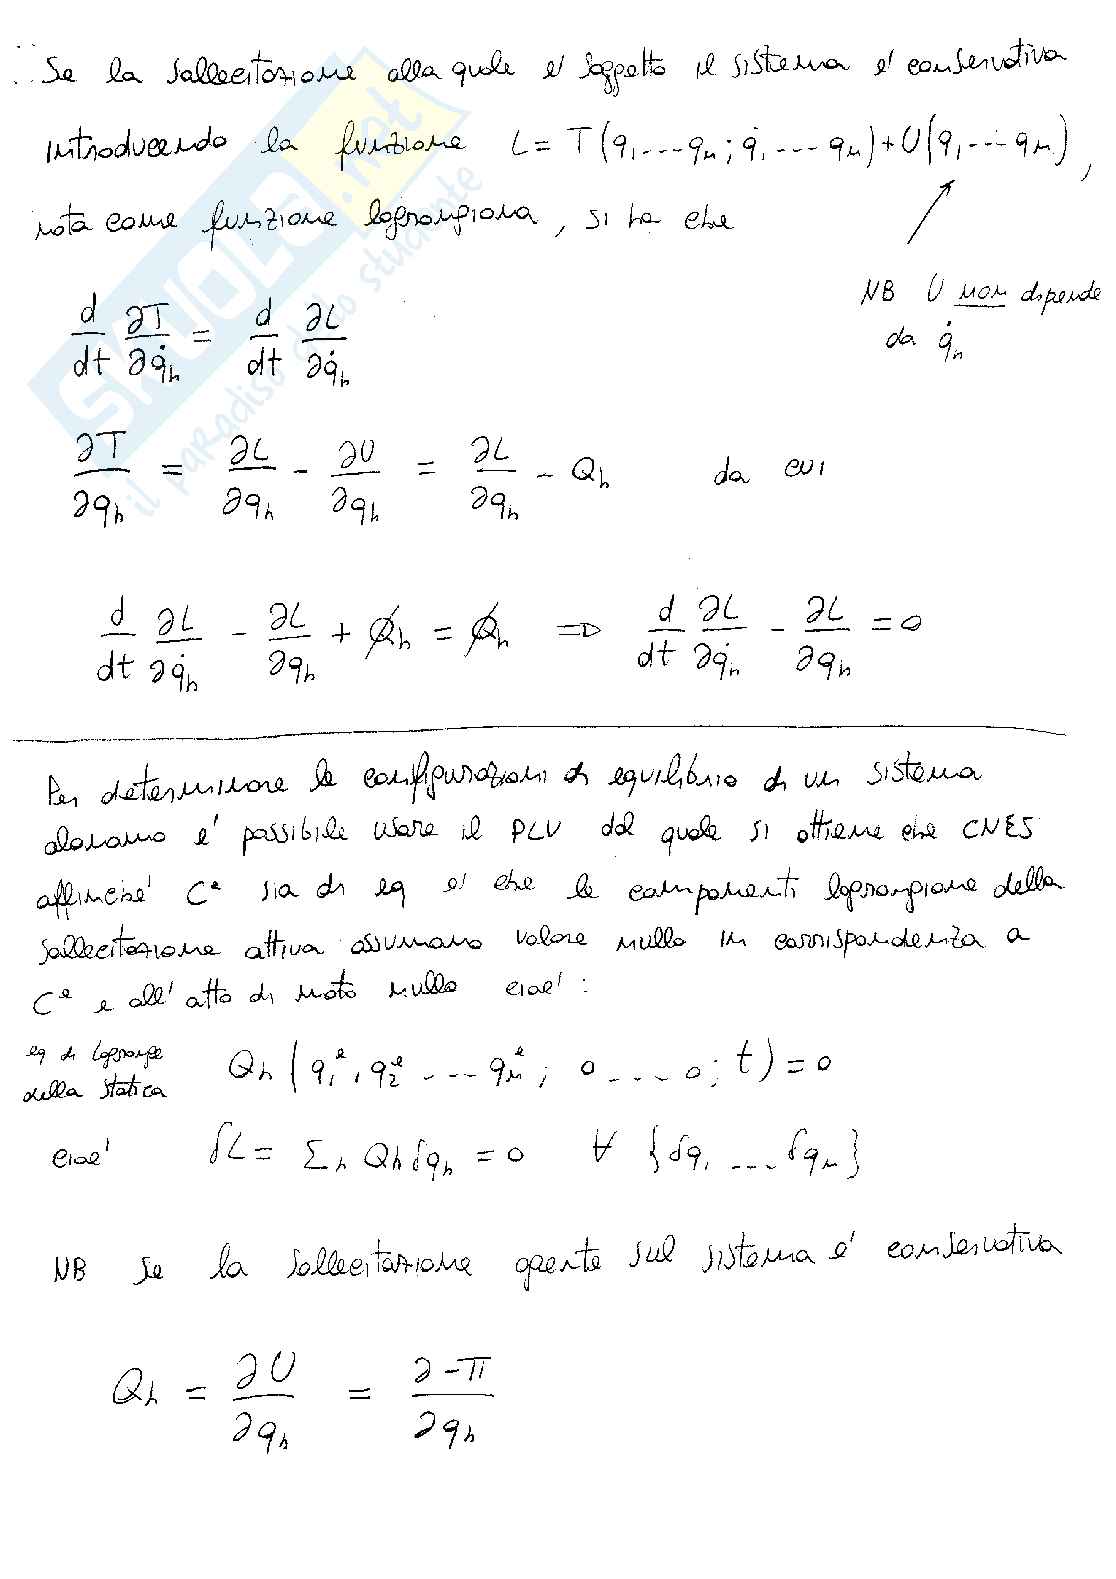 Se la sollecitazione alla quale e' soggetto il sistema e' conservativa
introducendo la funzione L = T(q₁ --- qₙ ; q̇₁ --- q̇ₙ) + U(q₁ --- qₙ),
nota come funzione lagrangiana, si ha che
NB U non dipende
da q̇ₕ
d/dt ∂T/∂q̇ₕ = d/dt ∂L/∂q̇ₕ
∂T/∂qₕ = ∂L/∂qₕ - ∂U/∂qₕ = ∂L/∂qₕ - Qₕ da cui
d/dt ∂L/∂q̇ₕ - ∂L/∂qₕ + Qₕ = Qₕ ⇒ d/dt ∂L/∂q̇ₕ - ∂L/∂qₕ = 0
Per determinare le configurazioni di equilibrio di un sistema
olonomo e' possibile usare il PLV dal quale si ottiene che CNES
affinche' Cᵉ sia di eq e' che le componenti lagrangiane della
sollecitazione attiva assumano valore nullo in corrispondenza a
Cᵉ e all'atto di moto nullo cioe' :
eq di lagrange
della statica
Qₕ (q₁ᵉ, q₂ᵉ ---- qₙᵉ ; 0 ---- 0 ; t) = 0
cioe' δL = Σₕ Qₕ δqₕ = 0 ∀ {δq₁ ---- δqₙ}
NB Se la sollecitazione agente sul sistema e' conservativa
Qₕ = ∂U/∂qₕ = ∂-Π/∂qₕ
SKUOLA.net
il paradiso dello studente